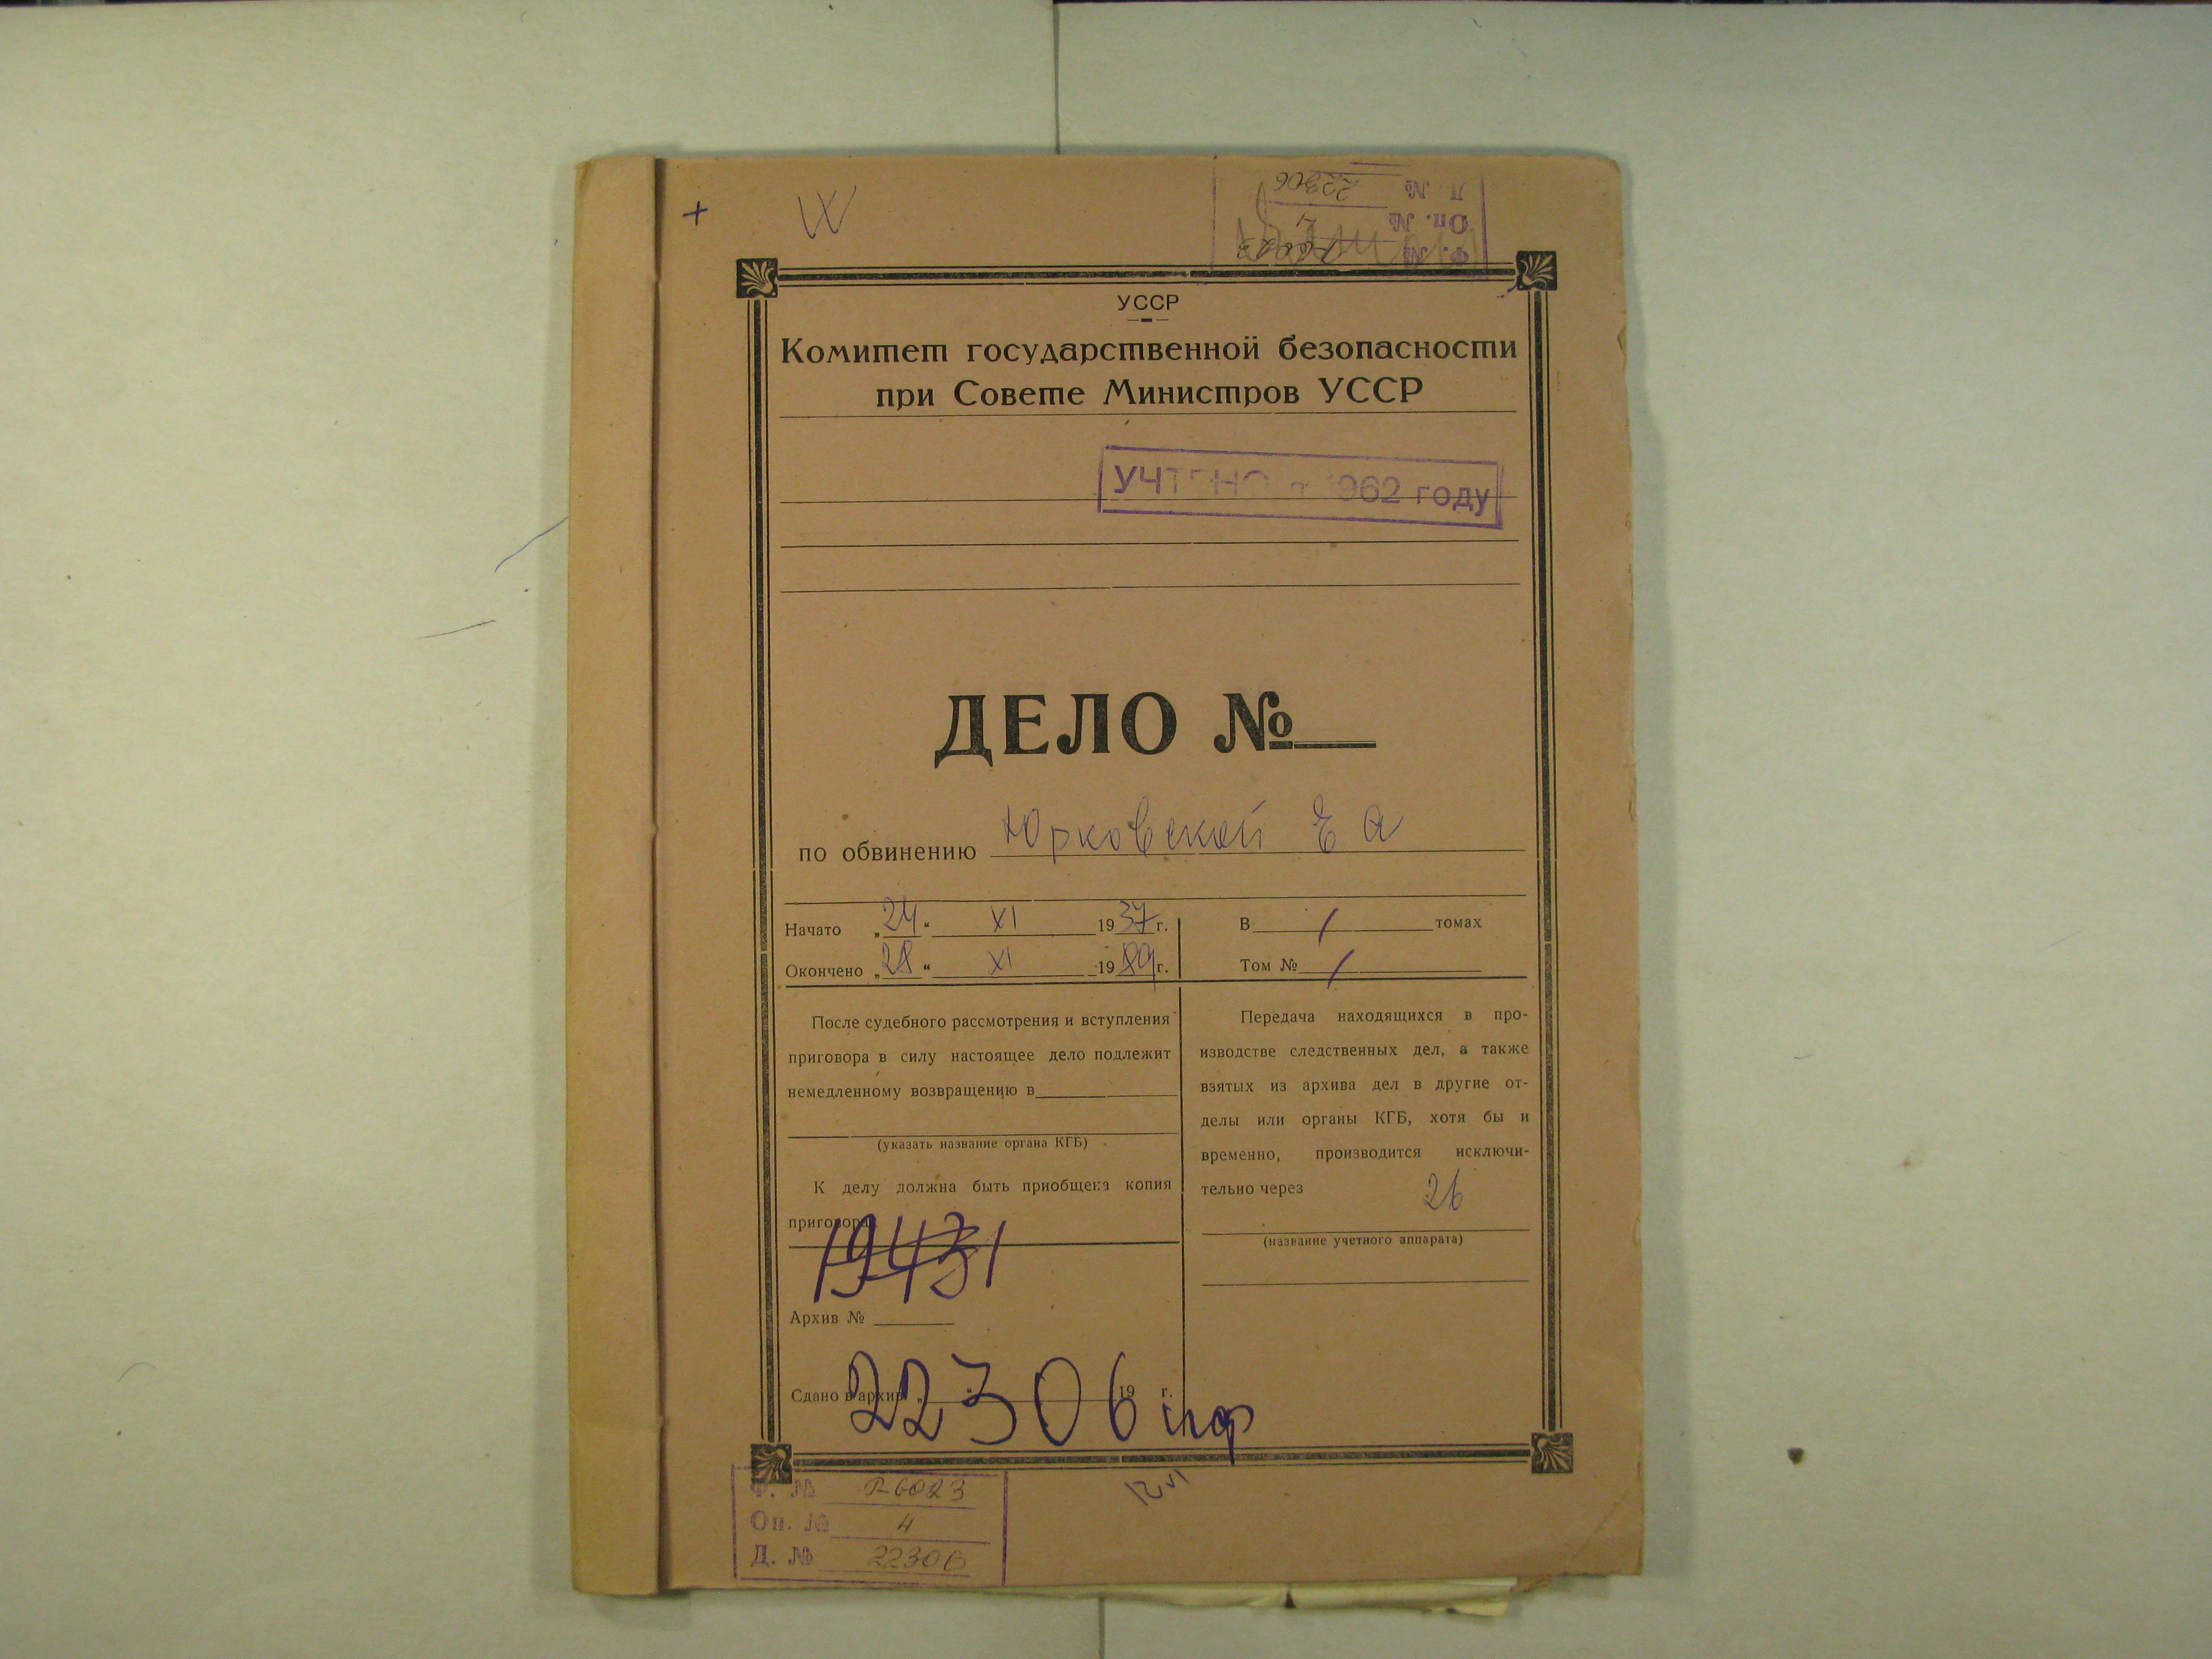 Ф. № Р6023
Оп. № 4
Д. № 22306
УССР
Комитет государственной безопасности
при Совете Министров УССР
УЧТЕНО в 1962 году
ДЕЛО №
по обвинению Юрковской Е А
Начато „24“ XI 1937 г.
Окончено „28“ XI 1989 г.
В 1 томах
Том № 1
После судебного рассмотрения и вступления
приговора в силу настоящее дело подлежит
немедленному возвращению в
(указать название органа КГБ)
К делу должна быть приобщена копия
приговора.
19431
Архив №
Сдано в архив „ “ 19 г.
22306 пф
Передача находящихся в про-
изводстве следственных дел, а также
взятых из архива дел в другие от-
делы или органы КГБ, хотя бы и
временно, производится исключи-
тельно через
26
(название учетного аппарата)
Ф. № Р6023
Оп. № 4
Д. № 22306